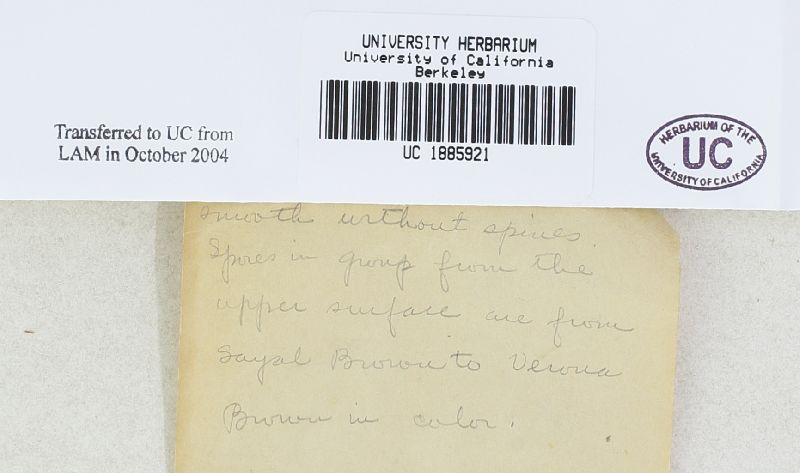 UNIVERSITY HERBARIUM
University of California
Berkeley
UC 1885921
Transferred to UC from
LAM in October 2004
HERBARIUM OF THE
UC
UNIVERSITY OF CALIFORNIA
smooth without spines.
Spores in group from the
upper surface are from
Sayal Brown to Verona
Brown in color.